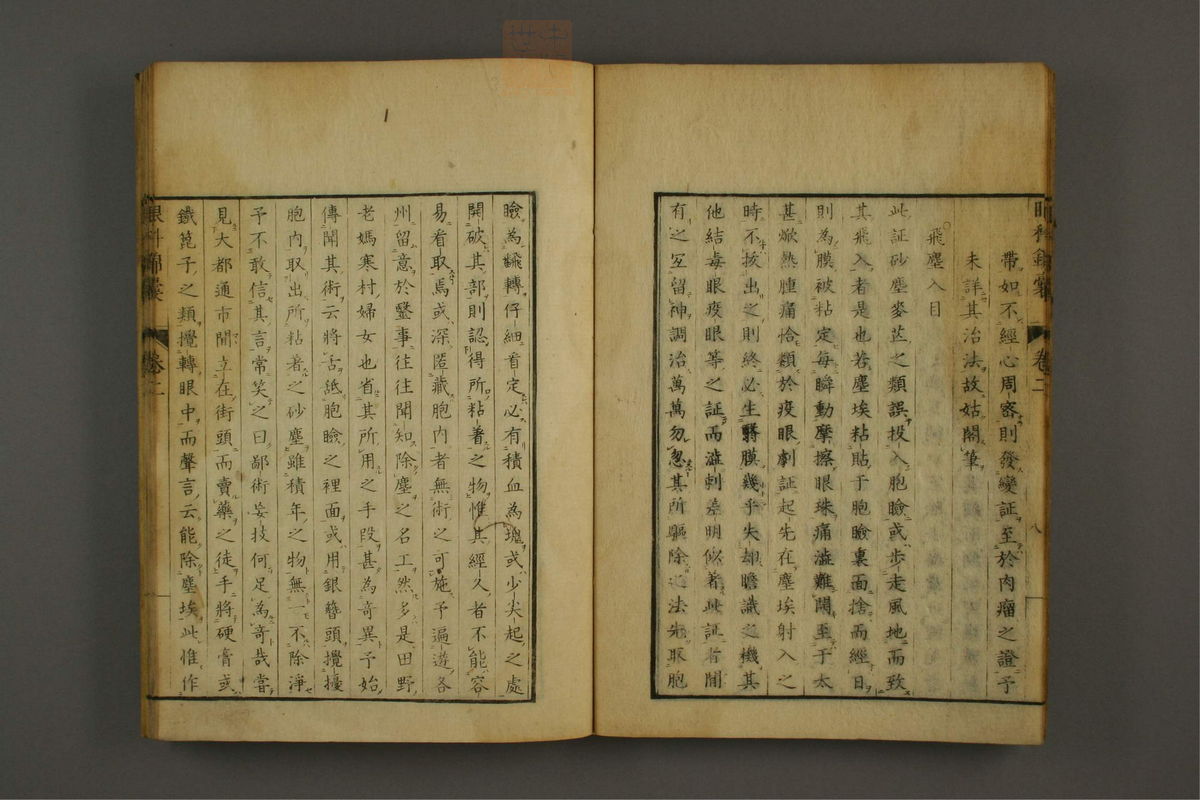 眼科錦囊 卷二 八
帶如不經心周密則發變証至於肉瘤之證予
未詳其治法故姑閣筆
飛塵入目
此証砂塵麥芒之類誤投入胞瞼或步走風地而致
其飛入者是也若塵埃粘貼于胞瞼裏面捨而經日
則為膜被粘定每瞬動摩擦眼珠痛澁難開至于太
甚焮熱腫痛恰類於疫眼劇証起先在塵埃射入之
時不拔出之則終必生翳膜幾乎失却瞻識之機其
他結毒眼疫眼等之証而澁刺羞明似著此証者間
有之宜留神調治萬萬勿忽其所驅除之法先取胞
瞼為飜轉仔細看定必有積血為塊或少尖起之處
開破其部則認得所粘著之物惟其經久者不能容
易看取焉或深匿藏胞內者無術之可施予遍遊各
州留意於毉事往往聞知除塵之名工然多是田野
老媽寒村婦女也省其所用之手段甚為奇異予始
傳聞其術云將舌舐胞瞼之裡面或用銀簪頭攪擾
胞內取出所粘著之砂塵雖積年之物無一不除淨
予不敢信其言常笑之曰鄙術妄技何足為奇哉嘗
見大都通市間立在街頭而賣藥之徒手將硬膏或
鐵篦子之類攪轉眼中而聲言云能除塵埃此惟作
眼科錦囊 卷二